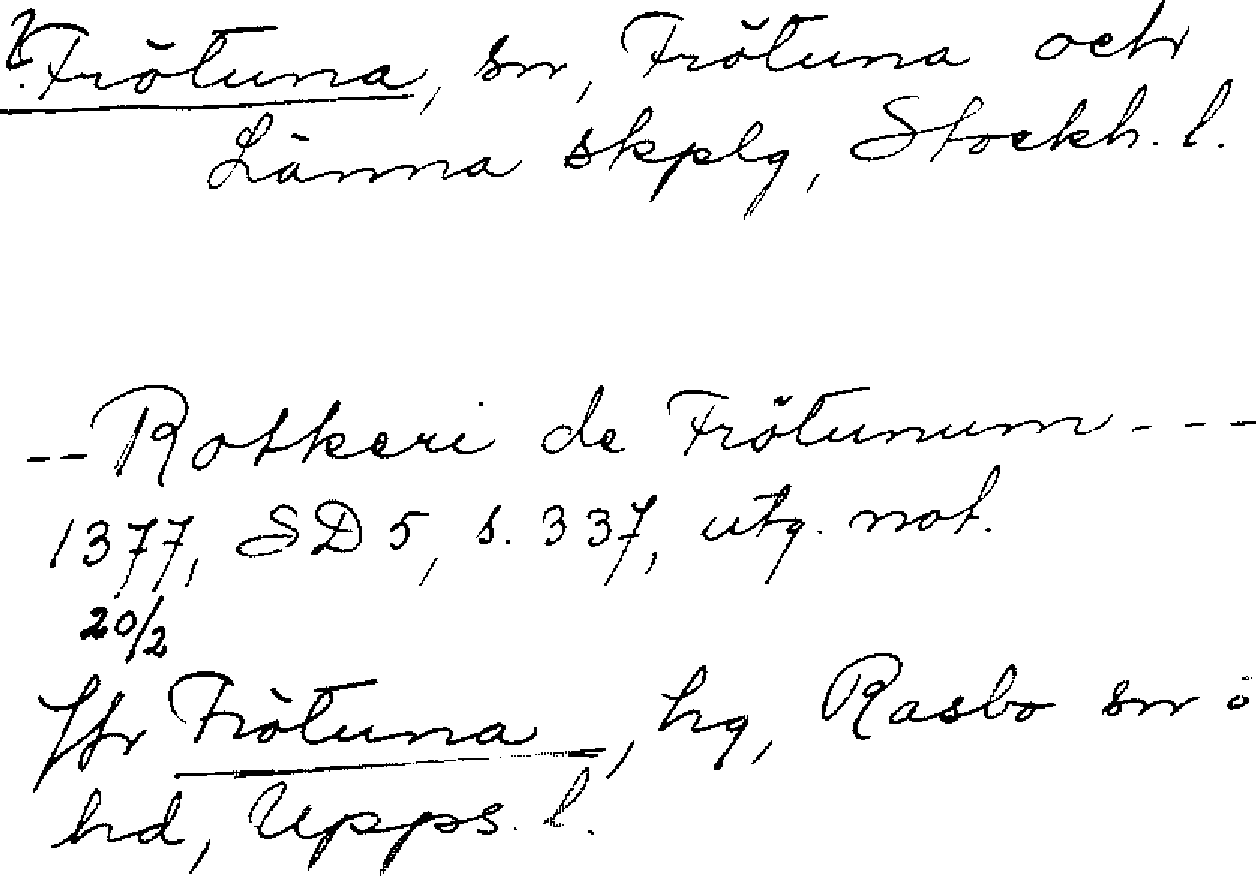 ?Frötuna, sn, Frötuna och
Länna skplg, Stockh. l.
-- Rotkeri de Frötunum ---
1377, SD 5, s. 337, utg. not.
20/2
Jfr Frötuna, hg, Rasbo sn o
hd, Upps. l.